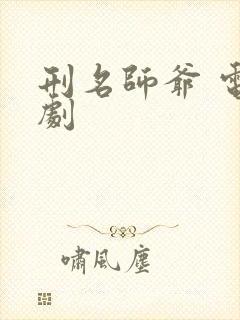 刑名師爺 電
劇
嘯風塵